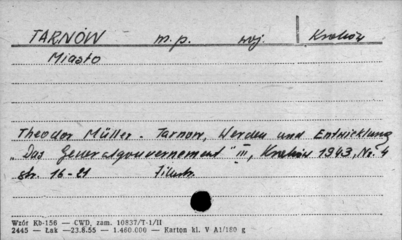 TARNÓW m.p. woj. Kraków
Miasto
Theodor Müller - Tarnow, Werden und Entwicklung
"Das Generalgouvernement" III, Kraków 1943, Nr. 4
str. 16-21 Illustr.
Wzór Kb-156 — CWD, zam. 10837/T-1/II
2445 — Łak —23.8.55 — 1.460.000 — Karton kl. V A1/180 g